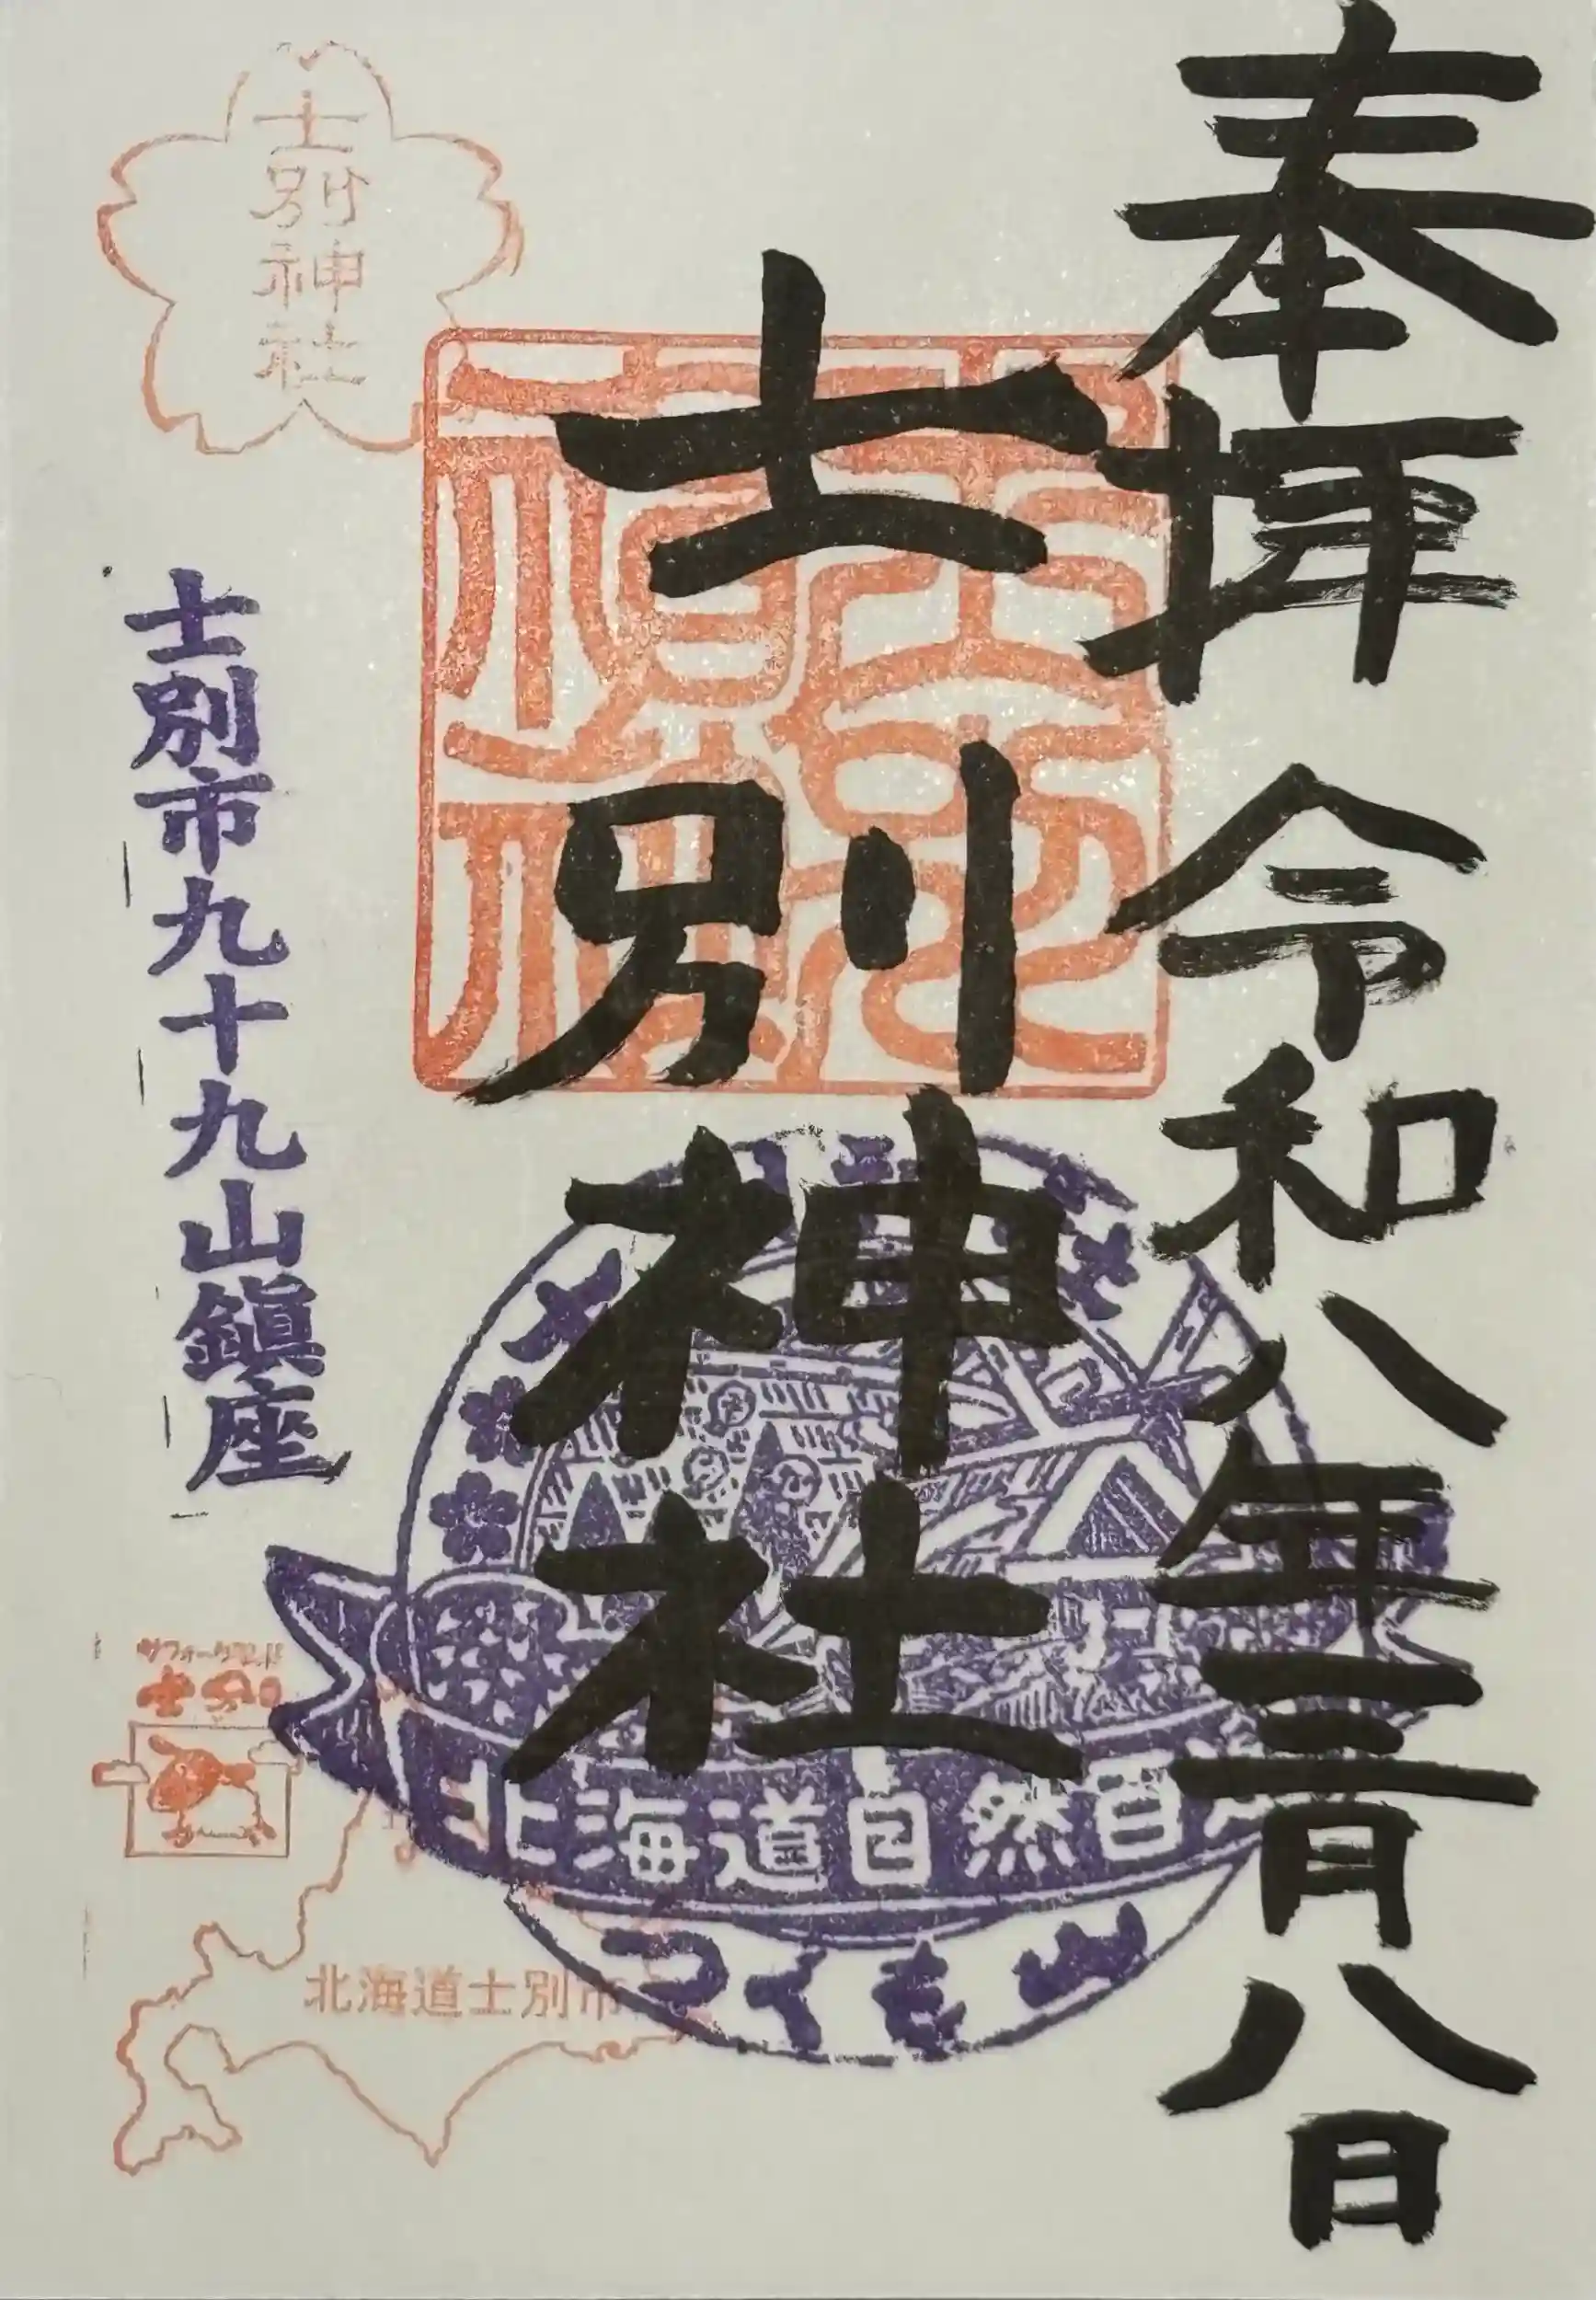 奉拝 令和八年三月八日
士別神社
士別神社
士別市九十九山鎮座
サフォークランド
士別
北海道自然百選
つくも山
北海道士別市